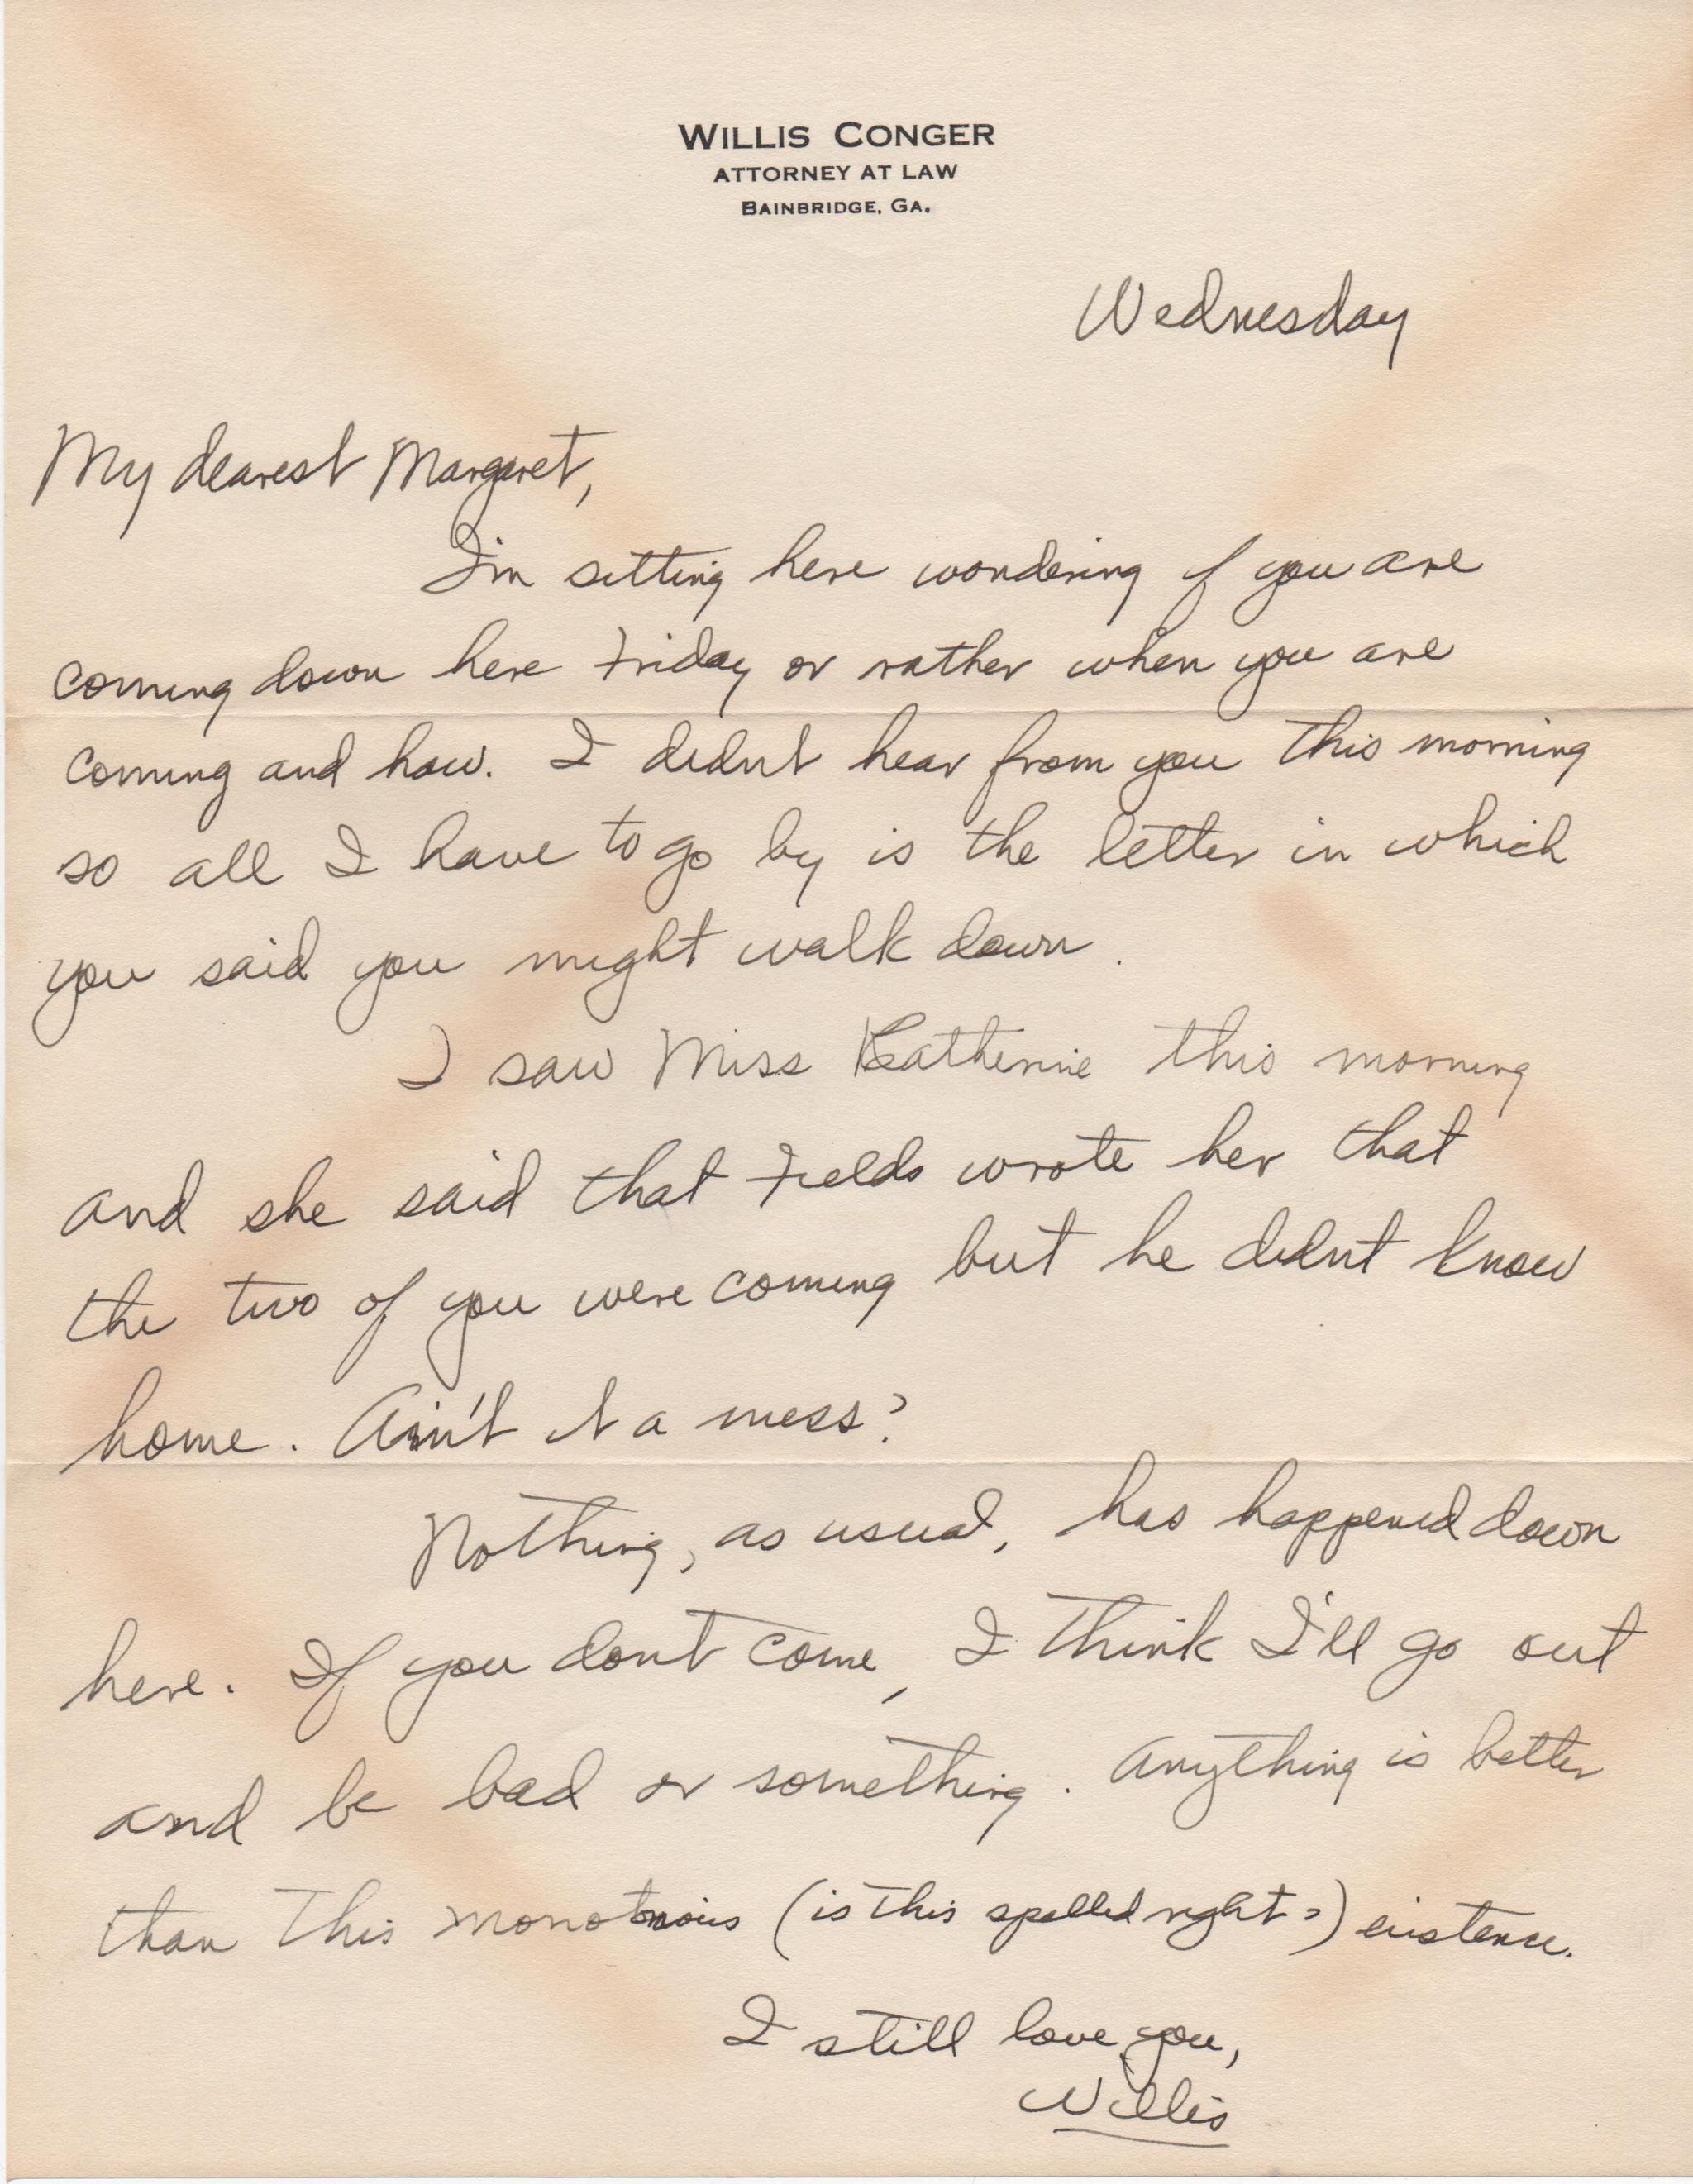 WILLIS CONGER
ATTORNEY AT LAW
BAINBRIDGE, GA.
Wednesday
My dearest Margaret,
I'm sitting here wondering if you are
coming down here Friday or rather when you are
coming and how. I didn't hear from you this morning
so all I have to go by is the letter in which
you said you might walk down.
I saw Miss Katherine this morning
and she said that Fields wrote her that
the two of you were coming but he didnt know
home. Ain't it a mess?
Nothing, as usual, has happened down
here. If you dont come, I think I'll go out
and be bad or something. Anything is better
than this monotonous (is this spelled right?) existence.
I still love you,
Willis